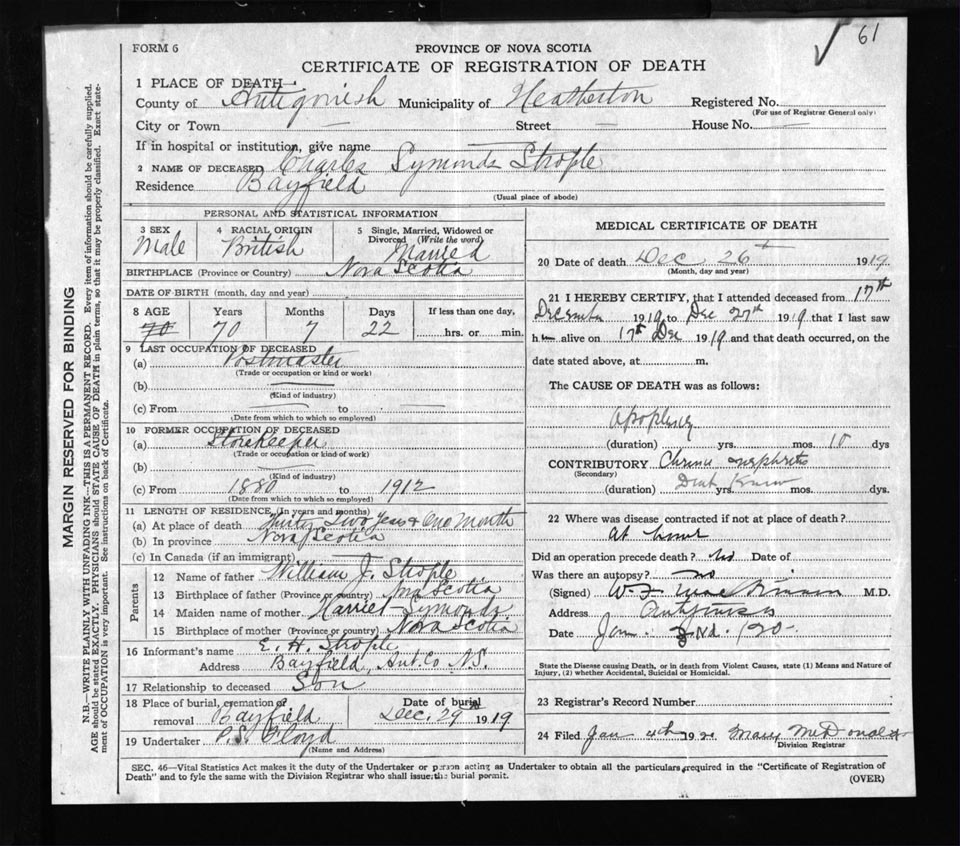 61
FORM 6
PROVINCE OF NOVA SCOTIA
CERTIFICATE OF REGISTRATION OF DEATH
1 PLACE OF DEATH
County of Antigonish Municipality of Heatherton Registered No.
(For use of Registrar General only)
City or Town Street — House No. —
If in hospital or institution, give name —
2 NAME OF DECEASED Charles Symonds Strople
Residence Bayfield
(Usual place of abode)
PERSONAL AND STATISTICAL INFORMATION
3 SEX Male
4 RACIAL ORIGIN British
5 Single, Married, Widowed or Divorced (Write the word) Married
BIRTHPLACE (Province or Country) Nova Scotia
DATE OF BIRTH (month, day and year)
8 AGE Years Months Days If less than one day,
70 70 7 22 hrs. or min.
9 LAST OCCUPATION OF DECEASED
(a) Postmaster
(Trade or occupation or kind or work)
(b)
(Kind of industry)
(c) From to
(Date from which to which so employed)
10 FORMER OCCUPATION OF DECEASED
(a) Storekeeper
(Trade or occupation or kind of work)
(b)
(Kind of industry)
(c) From 1880 to 1912
(Date from which to which so employed)
11 LENGTH OF RESIDENCE (In years and months)
(a) At place of death Thirty Two Years & One Month
(b) In province Nova Scotia
(c) In Canada (if an immigrant)
Parents
12 Name of father William J. Strople
13 Birthplace of father (Province or country) Nova Scotia
14 Maiden name of mother Harriet Symonds
15 Birthplace of mother (Province or country) Nova Scotia
16 Informant's name E. H. Strople
Address Bayfield, Ant. Co N.S.
17 Relationship to deceased Son
18 Place of burial, cremation or removal Bayfield Date of burial Dec. 29th 1919
19 Undertaker P.S. Floyd
(Name and Address)
MEDICAL CERTIFICATE OF DEATH
20 Date of death Dec 26th 1919
(Month, day and year)
21 I HEREBY CERTIFY, that I attended deceased from 17th
December 1919 to Dec 27th 1919 that I last saw
h alive on 17th Dec 1919 and that death occurred, on the
date stated above, at m.
The CAUSE OF DEATH was as follows:
Apoplexy
(duration) yrs. mos. 10 dys
CONTRIBUTORY Chronic nephritis
(Secondary)
(duration) Dont Know yrs. mos. dys.
22 Where was disease contracted if not at place of death?
At home
Did an operation precede death? No Date of
Was there an autopsy? no
(Signed) M.D.
Address Antigonish
Date Jan. 2nd. 1920
State the Disease causing Death, or in death from Violent Causes, state (1) Means and Nature of
Injury, (2) whether Accidental, Suicidal or Homicidal.
23 Registrar's Record Number
24 Filed Jan 4th 1920 Mary McDonald
Division Registrar
SEC. 46—Vital Statistics Act makes it the duty of the Undertaker or person acting as Undertaker to obtain all the particulars required in the "Certificate of Registration of
Death" and to fyle the same with the Division Registrar who shall issue the burial permit. (OVER)
MARGIN RESERVED FOR BINDING
N.B.—WRITE PLAINLY WITH UNFADING INK—THIS IS A PERMANENT RECORD. Every item of information should be carefully supplied.
AGE should be stated EXACTLY. PHYSICIANS should STATE CAUSE OF DEATH in plain terms, so that it may be properly classified. Exact state-
ment of OCCUPATION is very important. See instructions on back of Certificate.